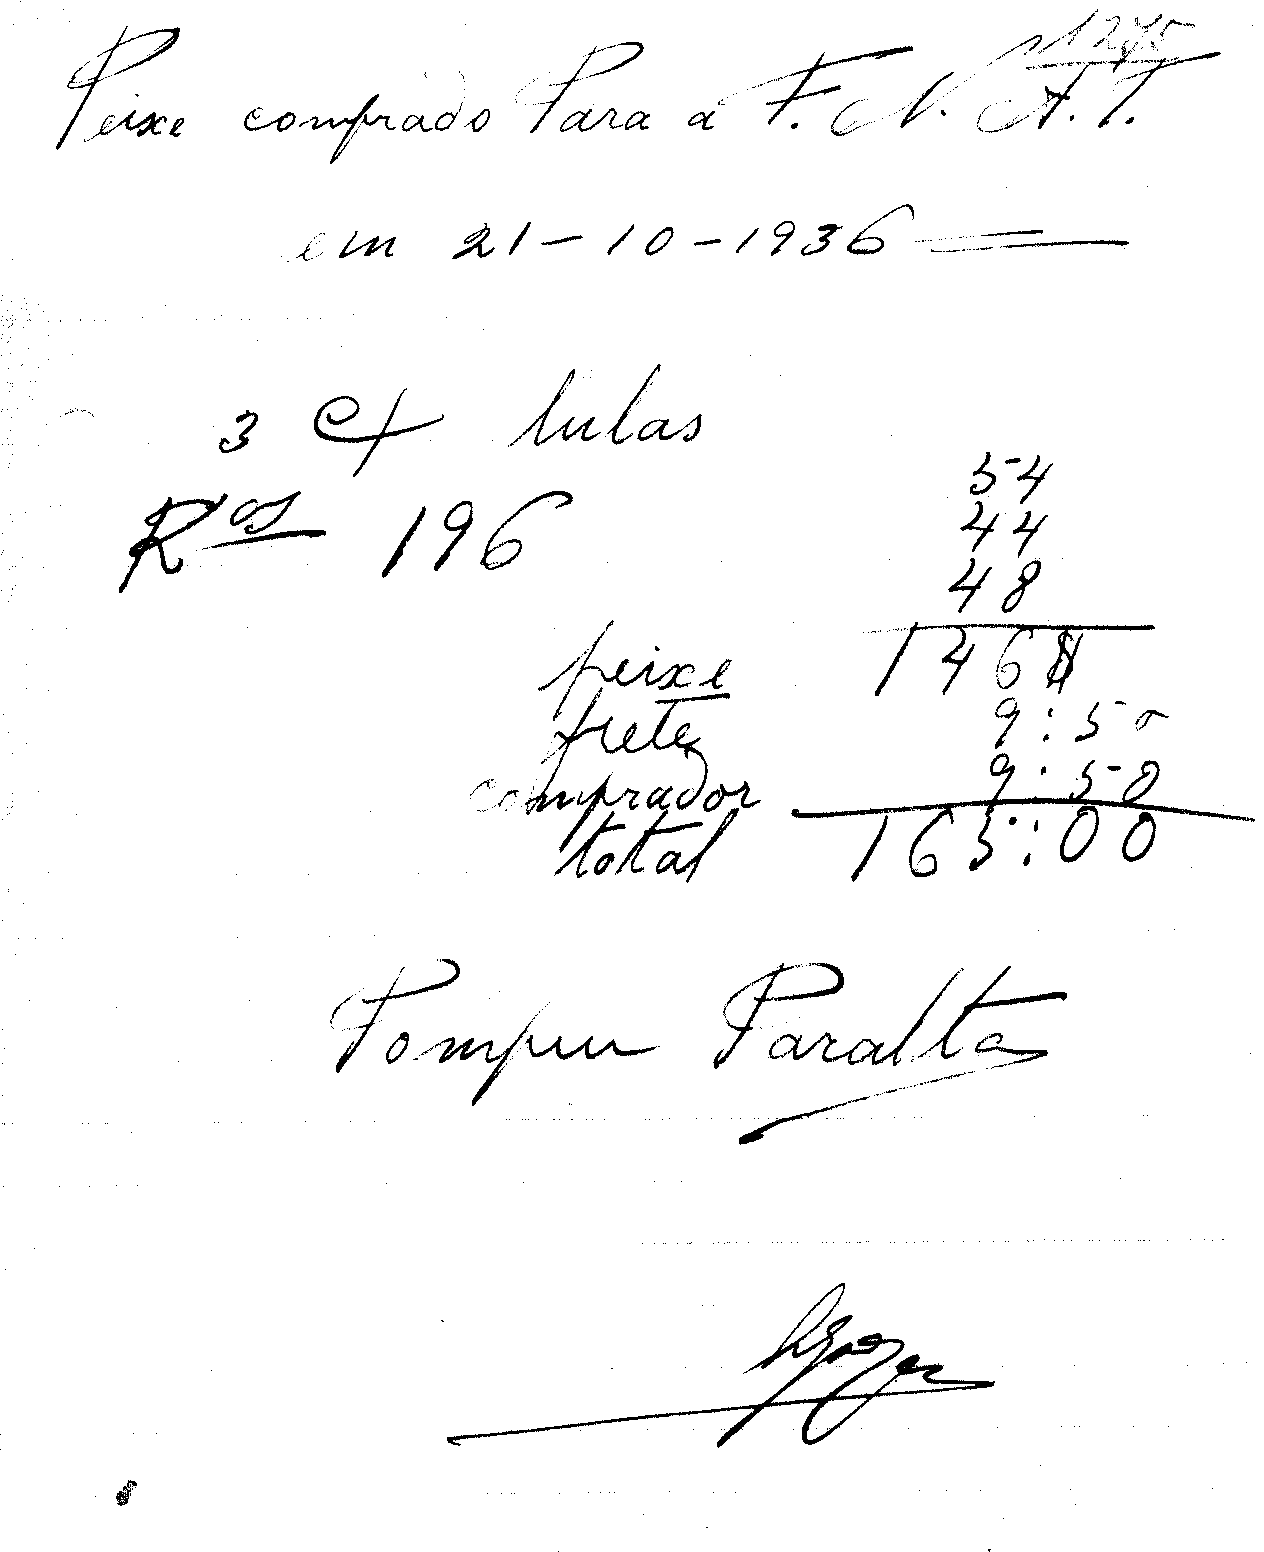 1275
Peixe comprado Para a F. N. A. T.
em 21-10-1936
3 Cx lulas
Ros 196
54
44
48
peixe 146$
frete 9:50
comprador 9:50
total 165:00
Pompeu Paralta